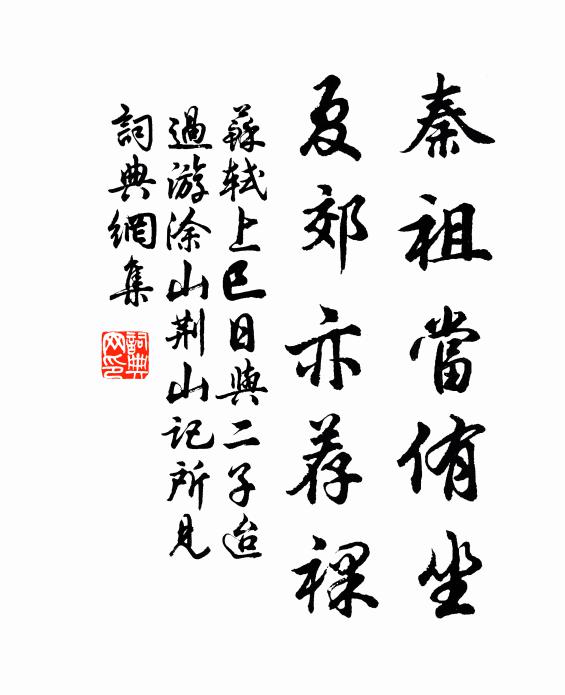 秦祖當侑坐
夏郊亦薦祼
蘇軾上巳日與二子迨
過游涂山荆山記所見
詞典網集
詞典
网印